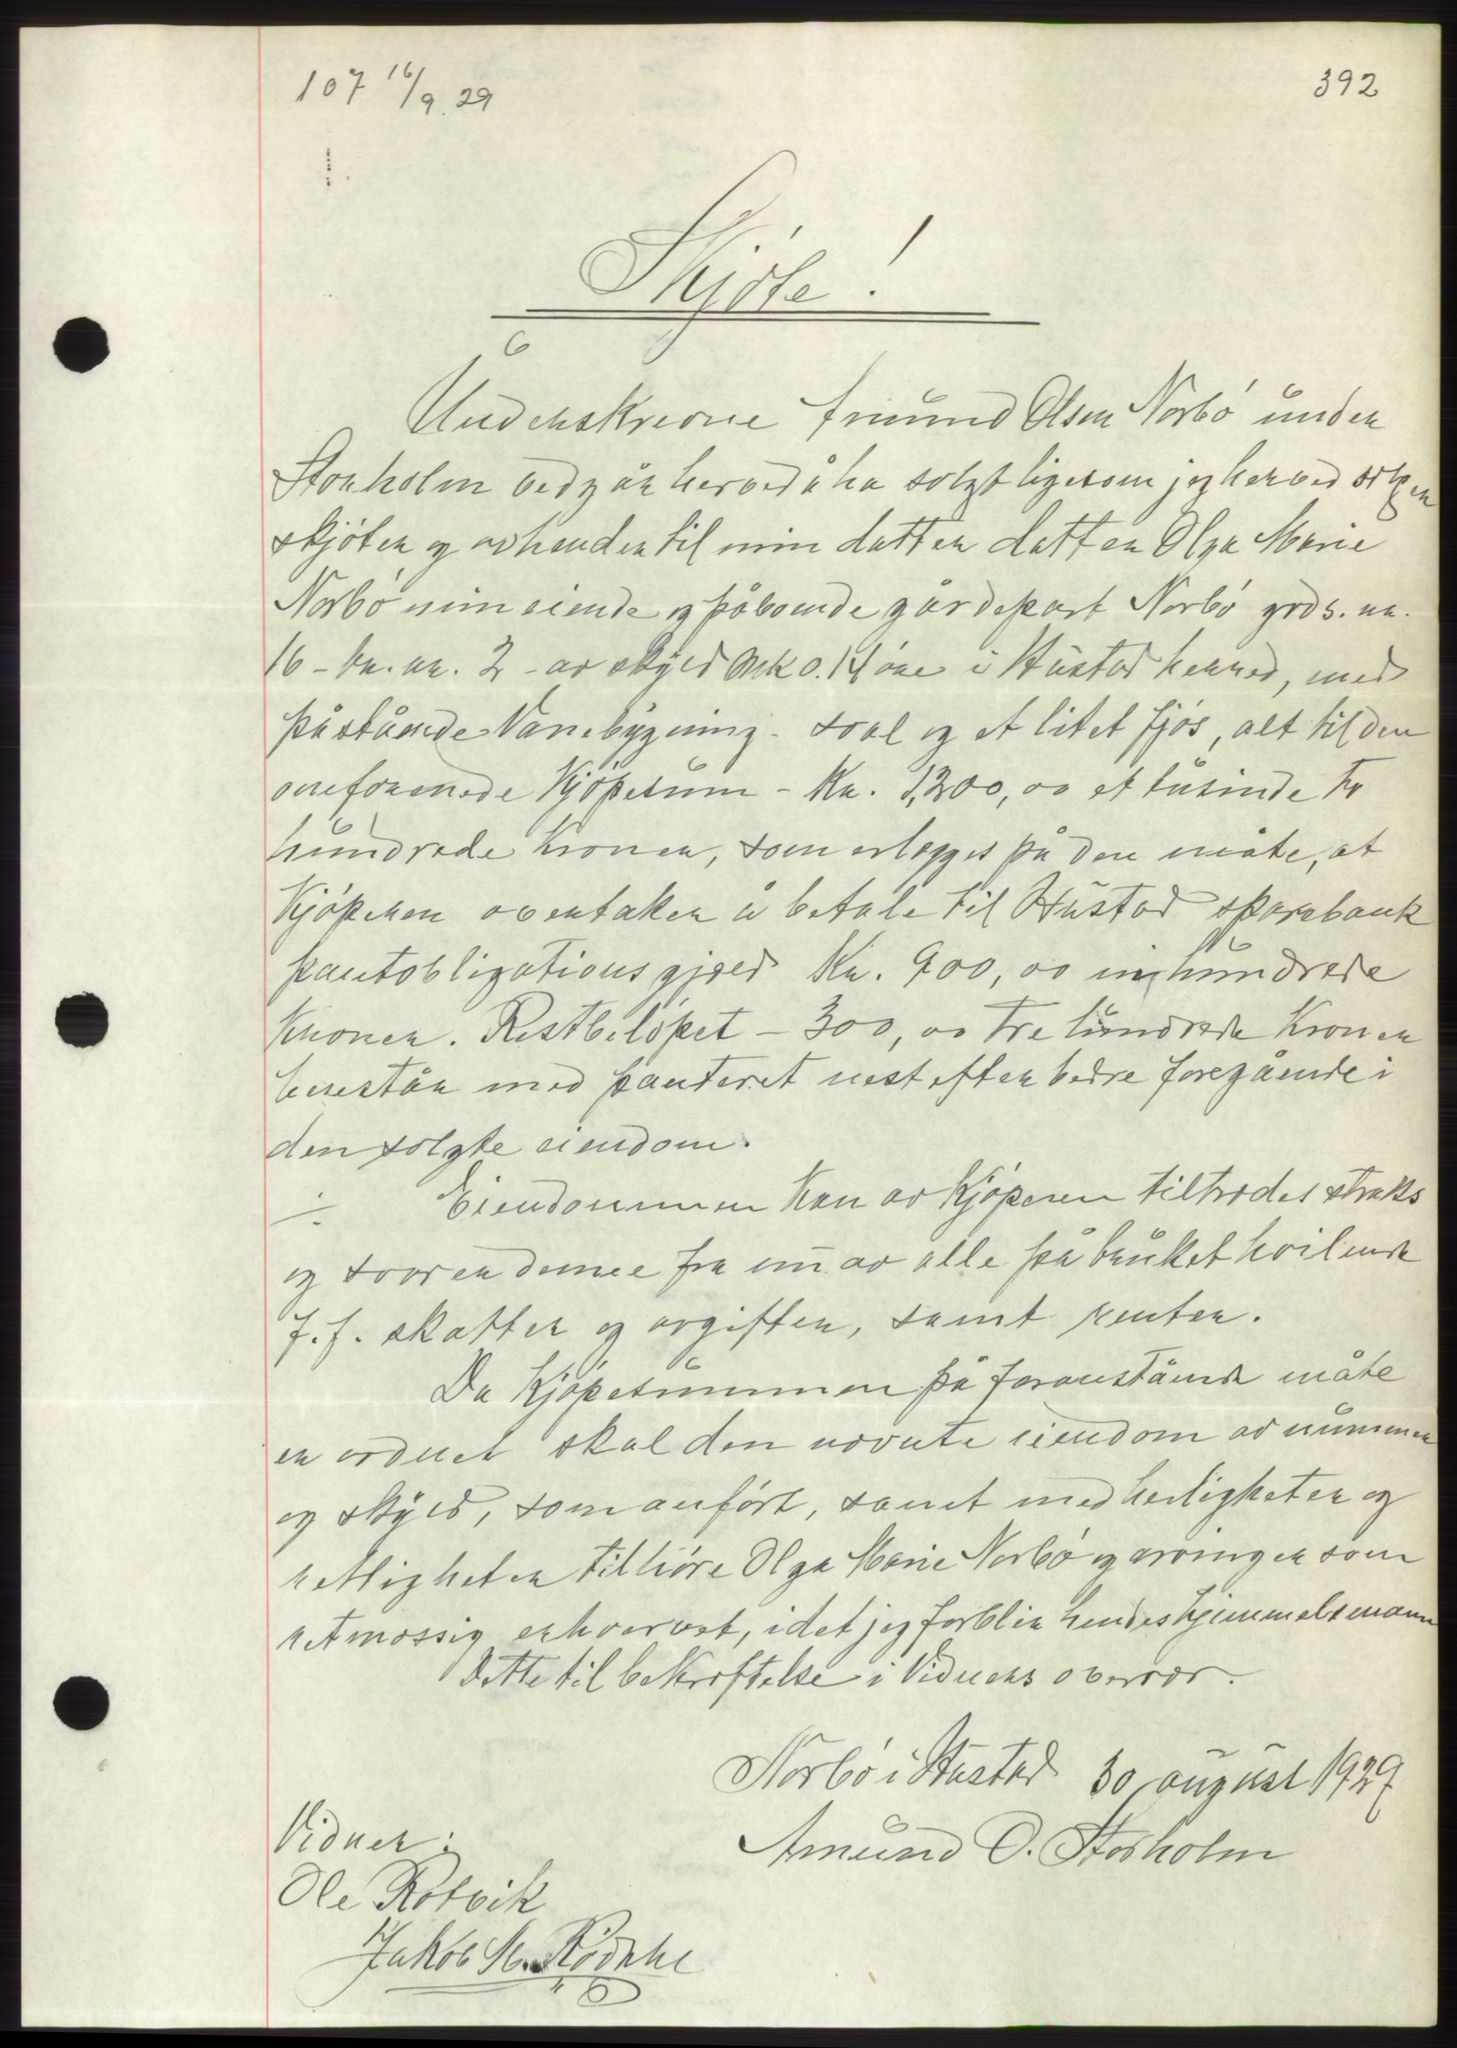 107 16/9. 29
392
Skjøte!
Underskrevne Amund Olsen Norbó under
Storholm vedgår herved å ha solgt ligesom jeg herved selger
skjöter og avhender til min datter datter Olga Marie
Norbó min eiende og påboende gårdepart Norbó grds. nr.
16 - br. nr. 2 - av skyld mk 0.14 öre i Hustad herred, med
påstående Vånebygning - sval og et litet fjós, alt til den
omforenede Kjöpesum - Kr. 1,200,00 et tusinde to
hundrede Kroner, som erlegges på den måte, at
Kjöperen overtaker å betale til Hustad sparebank
pantobligationsgjeld Kr. 900,00 nihundrede
Kroner. Restbelöpet - 300,00 Tre hundrede Kroner
henestår med panteret nest efter bedre foregående i
den solgte eiendom.
÷ Eiendommen Kan av Kjöperen tiltredes straks
og svarer denne fra nu av alle på bruket hvilende
f.f. skatter og avgifter, samt renter.
Da Kjöpesummen på foranstående måte
er ordnet skal den nevnte eiendom av nummer
og skyld, som anfört, samt med herligheter og
retligheter tilhöre Olga Marie Norbó og arvinger som
retmessig erhvervet, idet jeg forblir hendes hjemmelsmann
Dette til bekreftelse i Vidners overvær.
Norbó i Hustad 30 august 1929
Amund O. Storholm
Vidner:
Ole Rotvik
Jakob M.